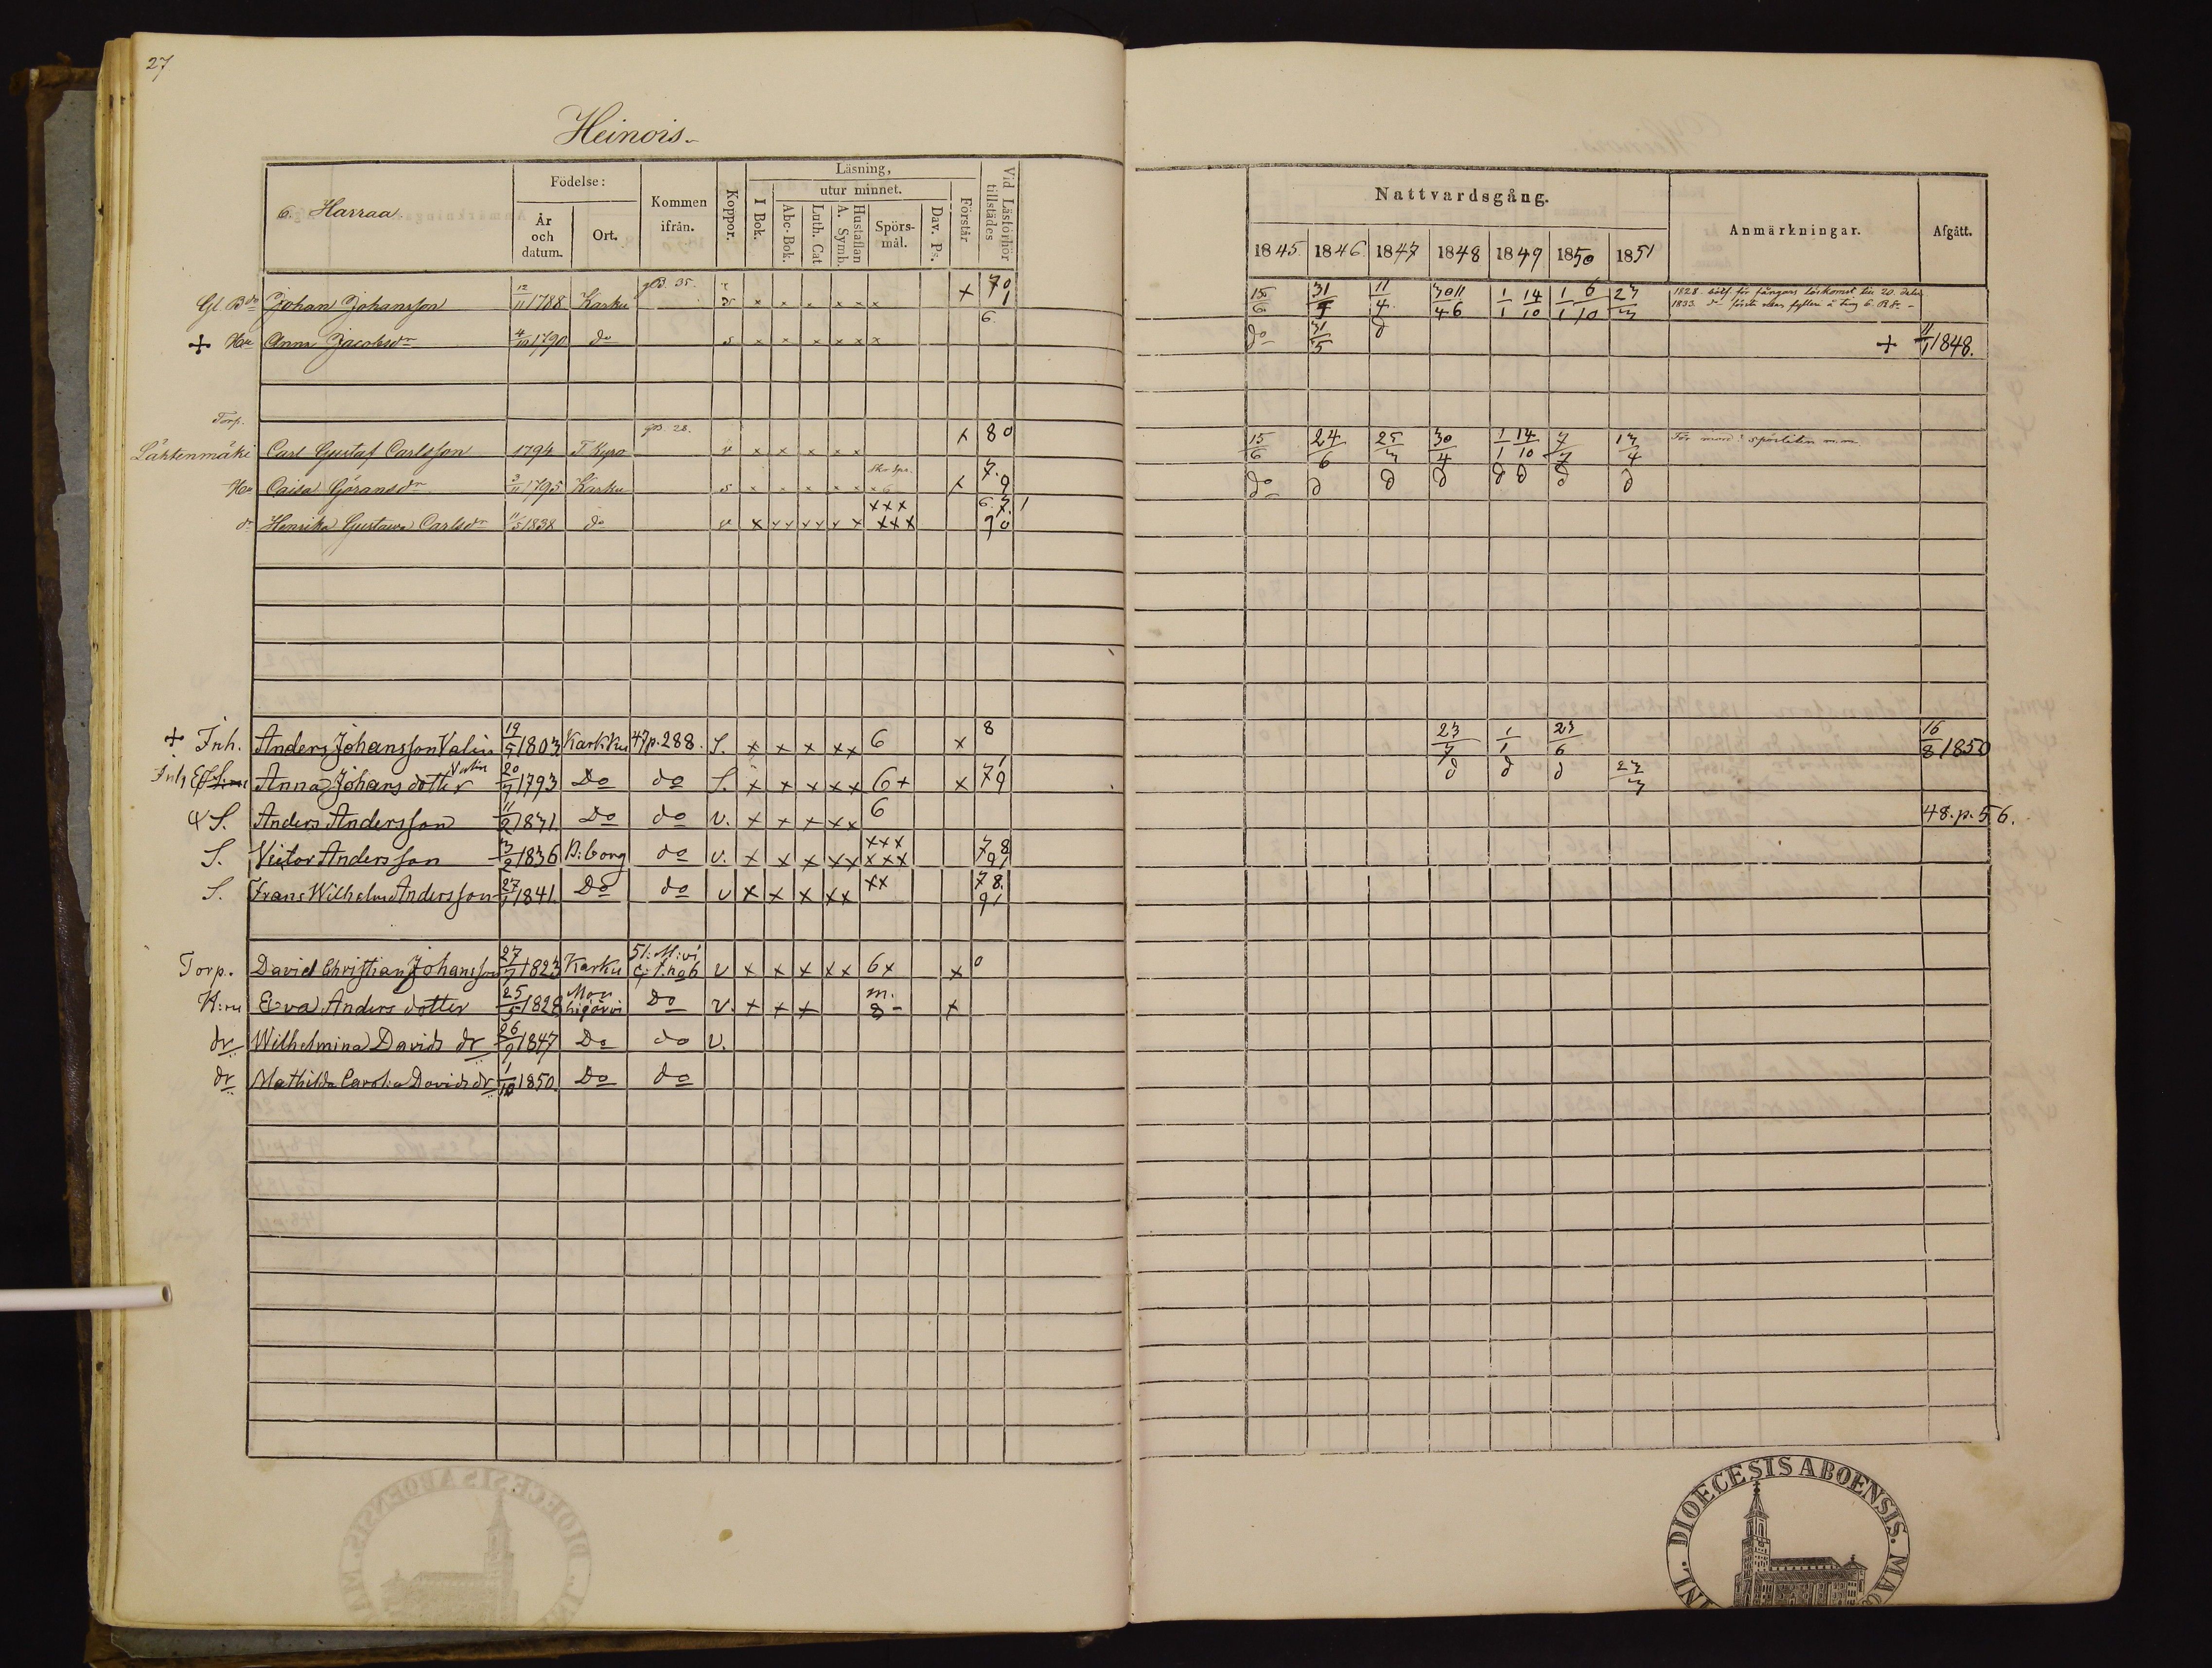 27
Heinois.
6. Harraa
Födelse:
År och datum.
Ort.
Kommen ifrån.
Koppor.
Läsning,
I Bok.
utur minnet.
Abc-Bok.
Luth. Cat
Hustaflan A. Symb.
Spörs-mål.
Dav. Ps.
Förstår
Vid Läsförhör tillstädes
Nattvardsgång.
1845 1846 1847 1848 1849 1850 1851
Anmärkningar.
Afgått.
Johan Johansson 12/11 1788 Karku 35. x x x x x x x 7 0 1 15/6 11/4 30/4 11/6 1/1 14/10 1/1 6/10 23/3
1828. för 20.
1833. 6. R
+ Hu Anna Jacobsdr 4/10 1790 do s x x x x x x 6. do 31/5 d + 11/1 1848.
Torp.
Lähtenmäki Carl Gustaf Carlsson 1794 T Kyro 28. v x x x x x x 8 0 15/6 24/6 25/3 30/4 1/1 14/10 7/7 13/4
Hu Caisa Göransdr 1795 Karku s x x x x x x x 7. 9 do d d d d d d d
dr Henrika Gustava Carlsdr 11/5 1838 do v x x x x x x x x x x x x 6. 7. 1 9 0
+ Inh. Anders Johansson Valin 19/5 1803 Karkku 47 p. 288. S. x x x x x 6 x 8 23/7 1/1 23/6 16/8 1850
Inh Anna Johans dotter Valin 20/7 1793 Do do S. x x x x x 6 + x 7 1 9 d d d 23/3
S. Anders Andersson 11/2 1831 Do do v. x x x x x 6 48. p. 56.
S. Victor Andersson 3/2 1836 B:borg do v. x x x x x x x x x x x 7 8 9 1
S. Frans Wilhelm Andersson 27/1 1841. Do do v x x x x x x x 7 8. 9 1
Torp. David Christian Johansson 27/7 1823 Karku 51: M:vi v x x x x x 6 x x 0
H:ru Eva Anders dotter 25/5 1828 Do v. x x x m. 8 - x
dr Wilhelmina Davids dr 26/9 1847 Do do v.
dr Mathilda Carolina Davids dr 1/10 1850. Do do
DIOECESIS ABOENSIS.